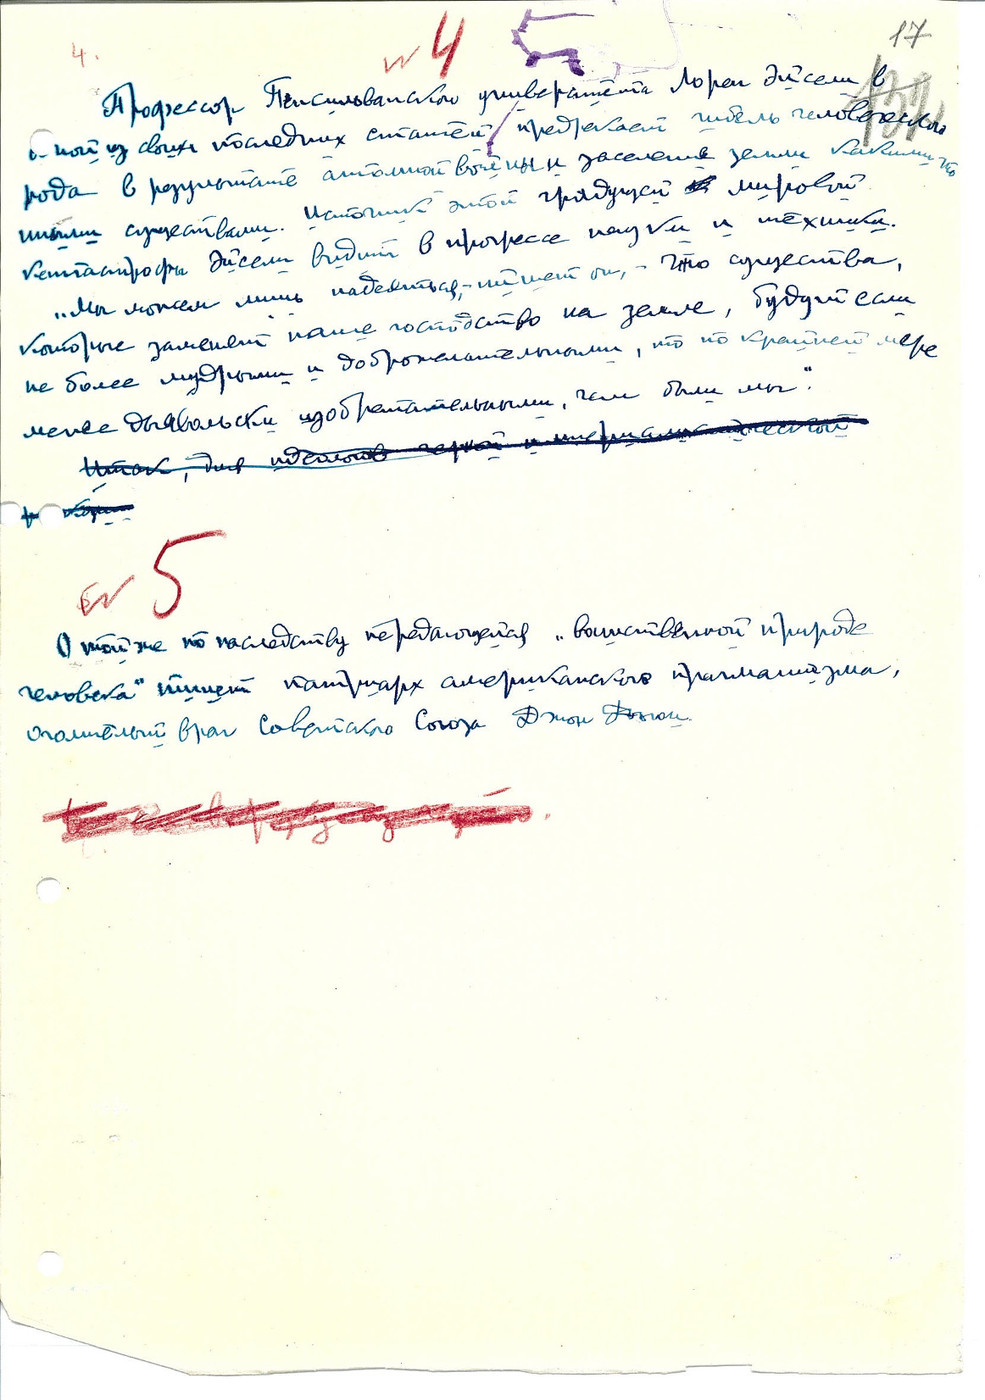 17
4.
№ 4
132
Профессор Пенсильванского университета Лорен Эйсели в
одной из своих последних статей предрекает гибель человеческого
рода в результате атомной войны и заселение земли какими-то
иными существами. Источник этой грядущей мировой
катастрофы Эйсели видит в прогрессе науки и техники.
„Мы можем лишь надеяться, - пишет он, - что существа,
которые заменят наше господство на земле, будут если
не более мудрыми и доброжелательными, то по крайней мере
менее дьявольски изобретательными, чем были мы".
Итак, для идеологов черной и империалистической
№ 5
О той же по наследству передающейся „воинственной природе
человека" пишет патриарх американского прагматизма,
оголтелый враг Советского Союза Джон Дьюи.